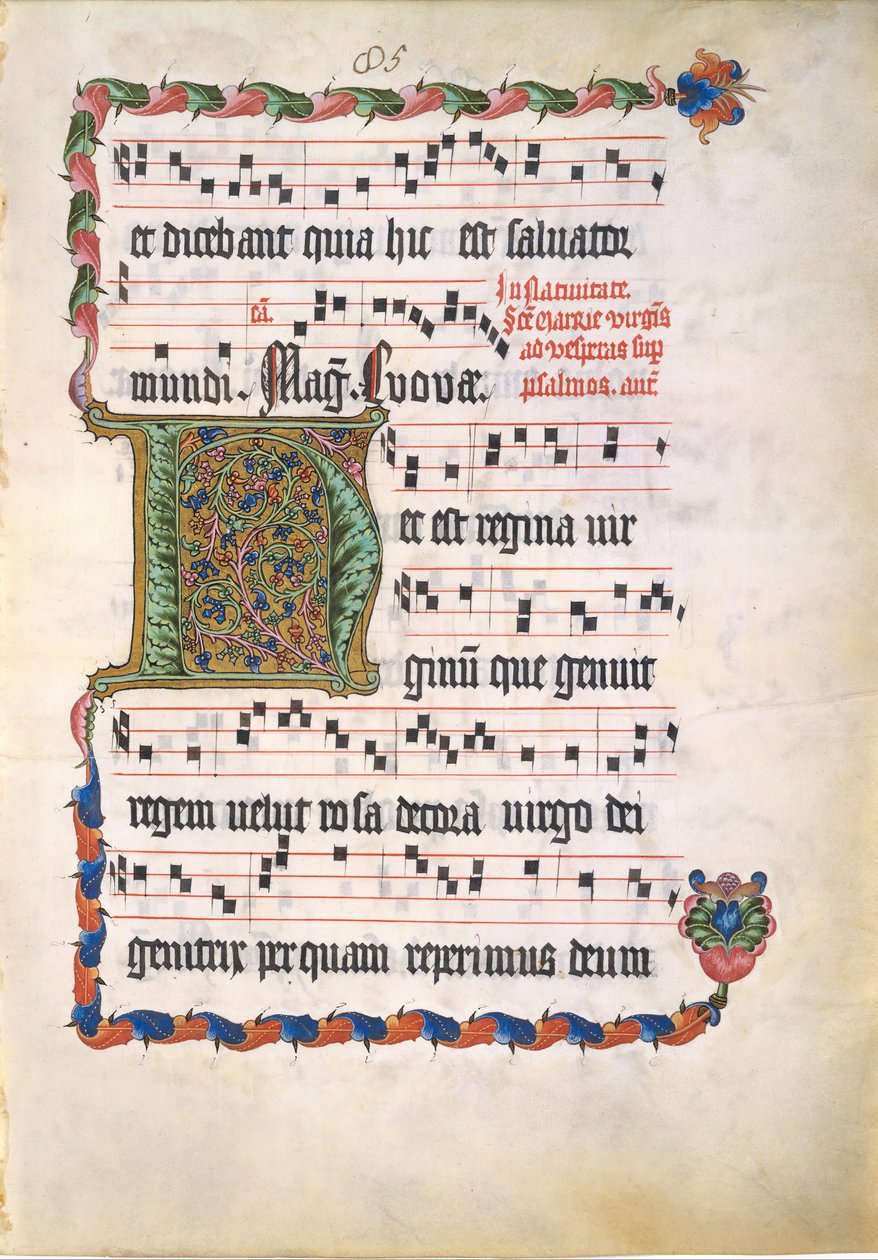 85
et dicebant quia hic est saluator
eā.
In Natiuitate.
Scē Marie virgīs
ad vesperas sup
psalmos. ant̄.
mundi. Maḡ. Evova.
H
ec est regina uir
ginū que genuit
regem uelut rosa decora uirgo dei
genitrix per quam reperimus deum